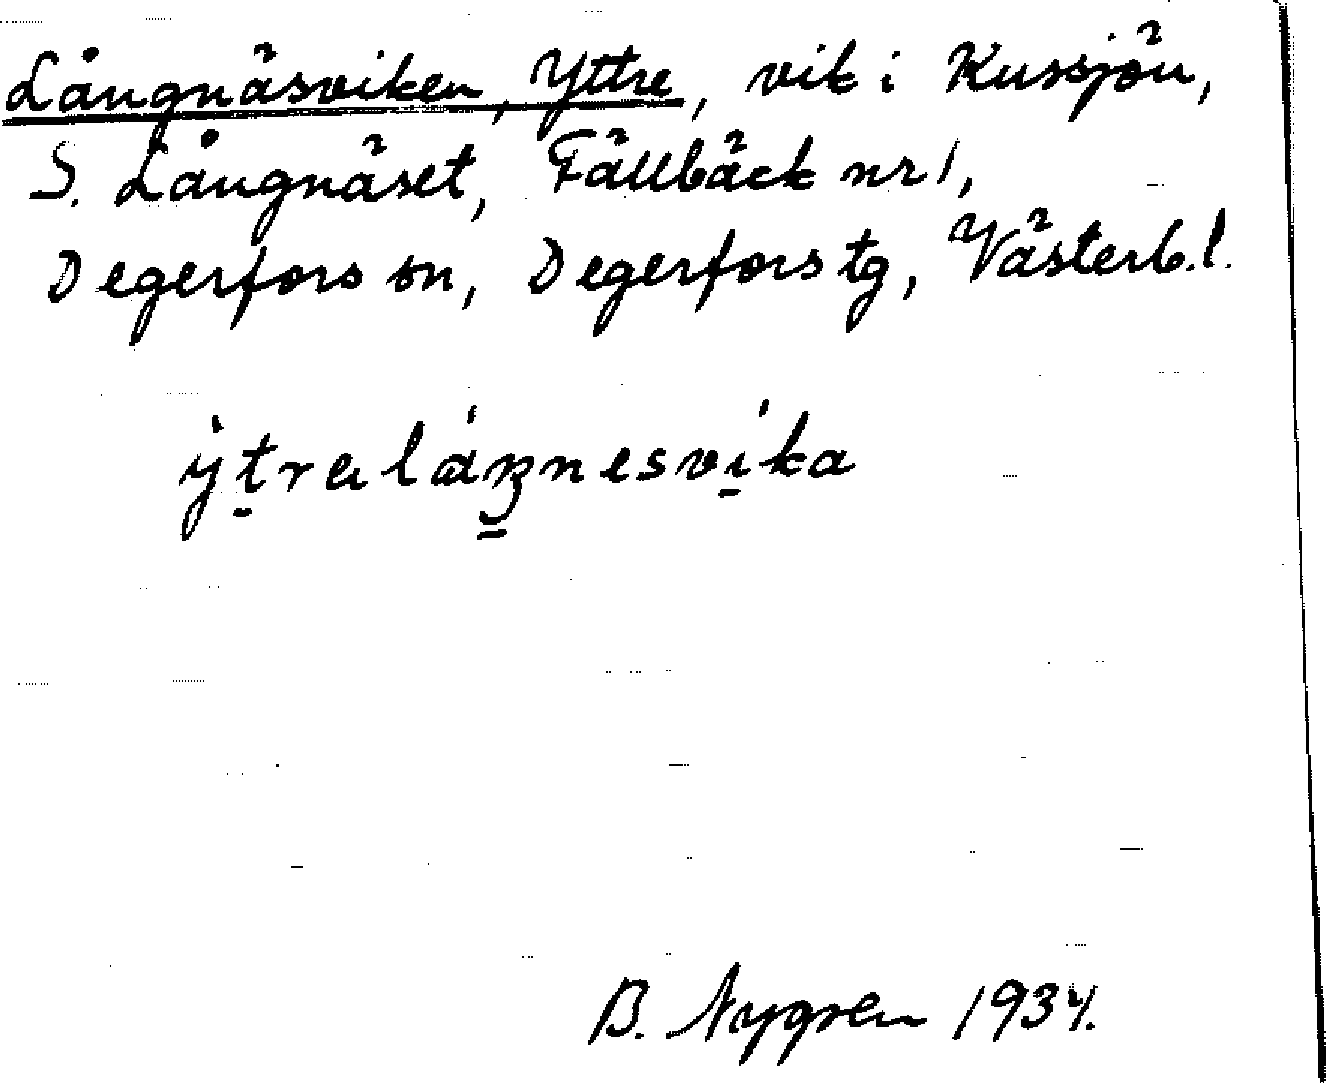 Långnäsviken, Yttre, vik i Kussjön,
S. Långnäset, Fällbäck nr 1,
Degerfors sn, Degerfors tg, Västerb.l.
B. Nygren 1934.